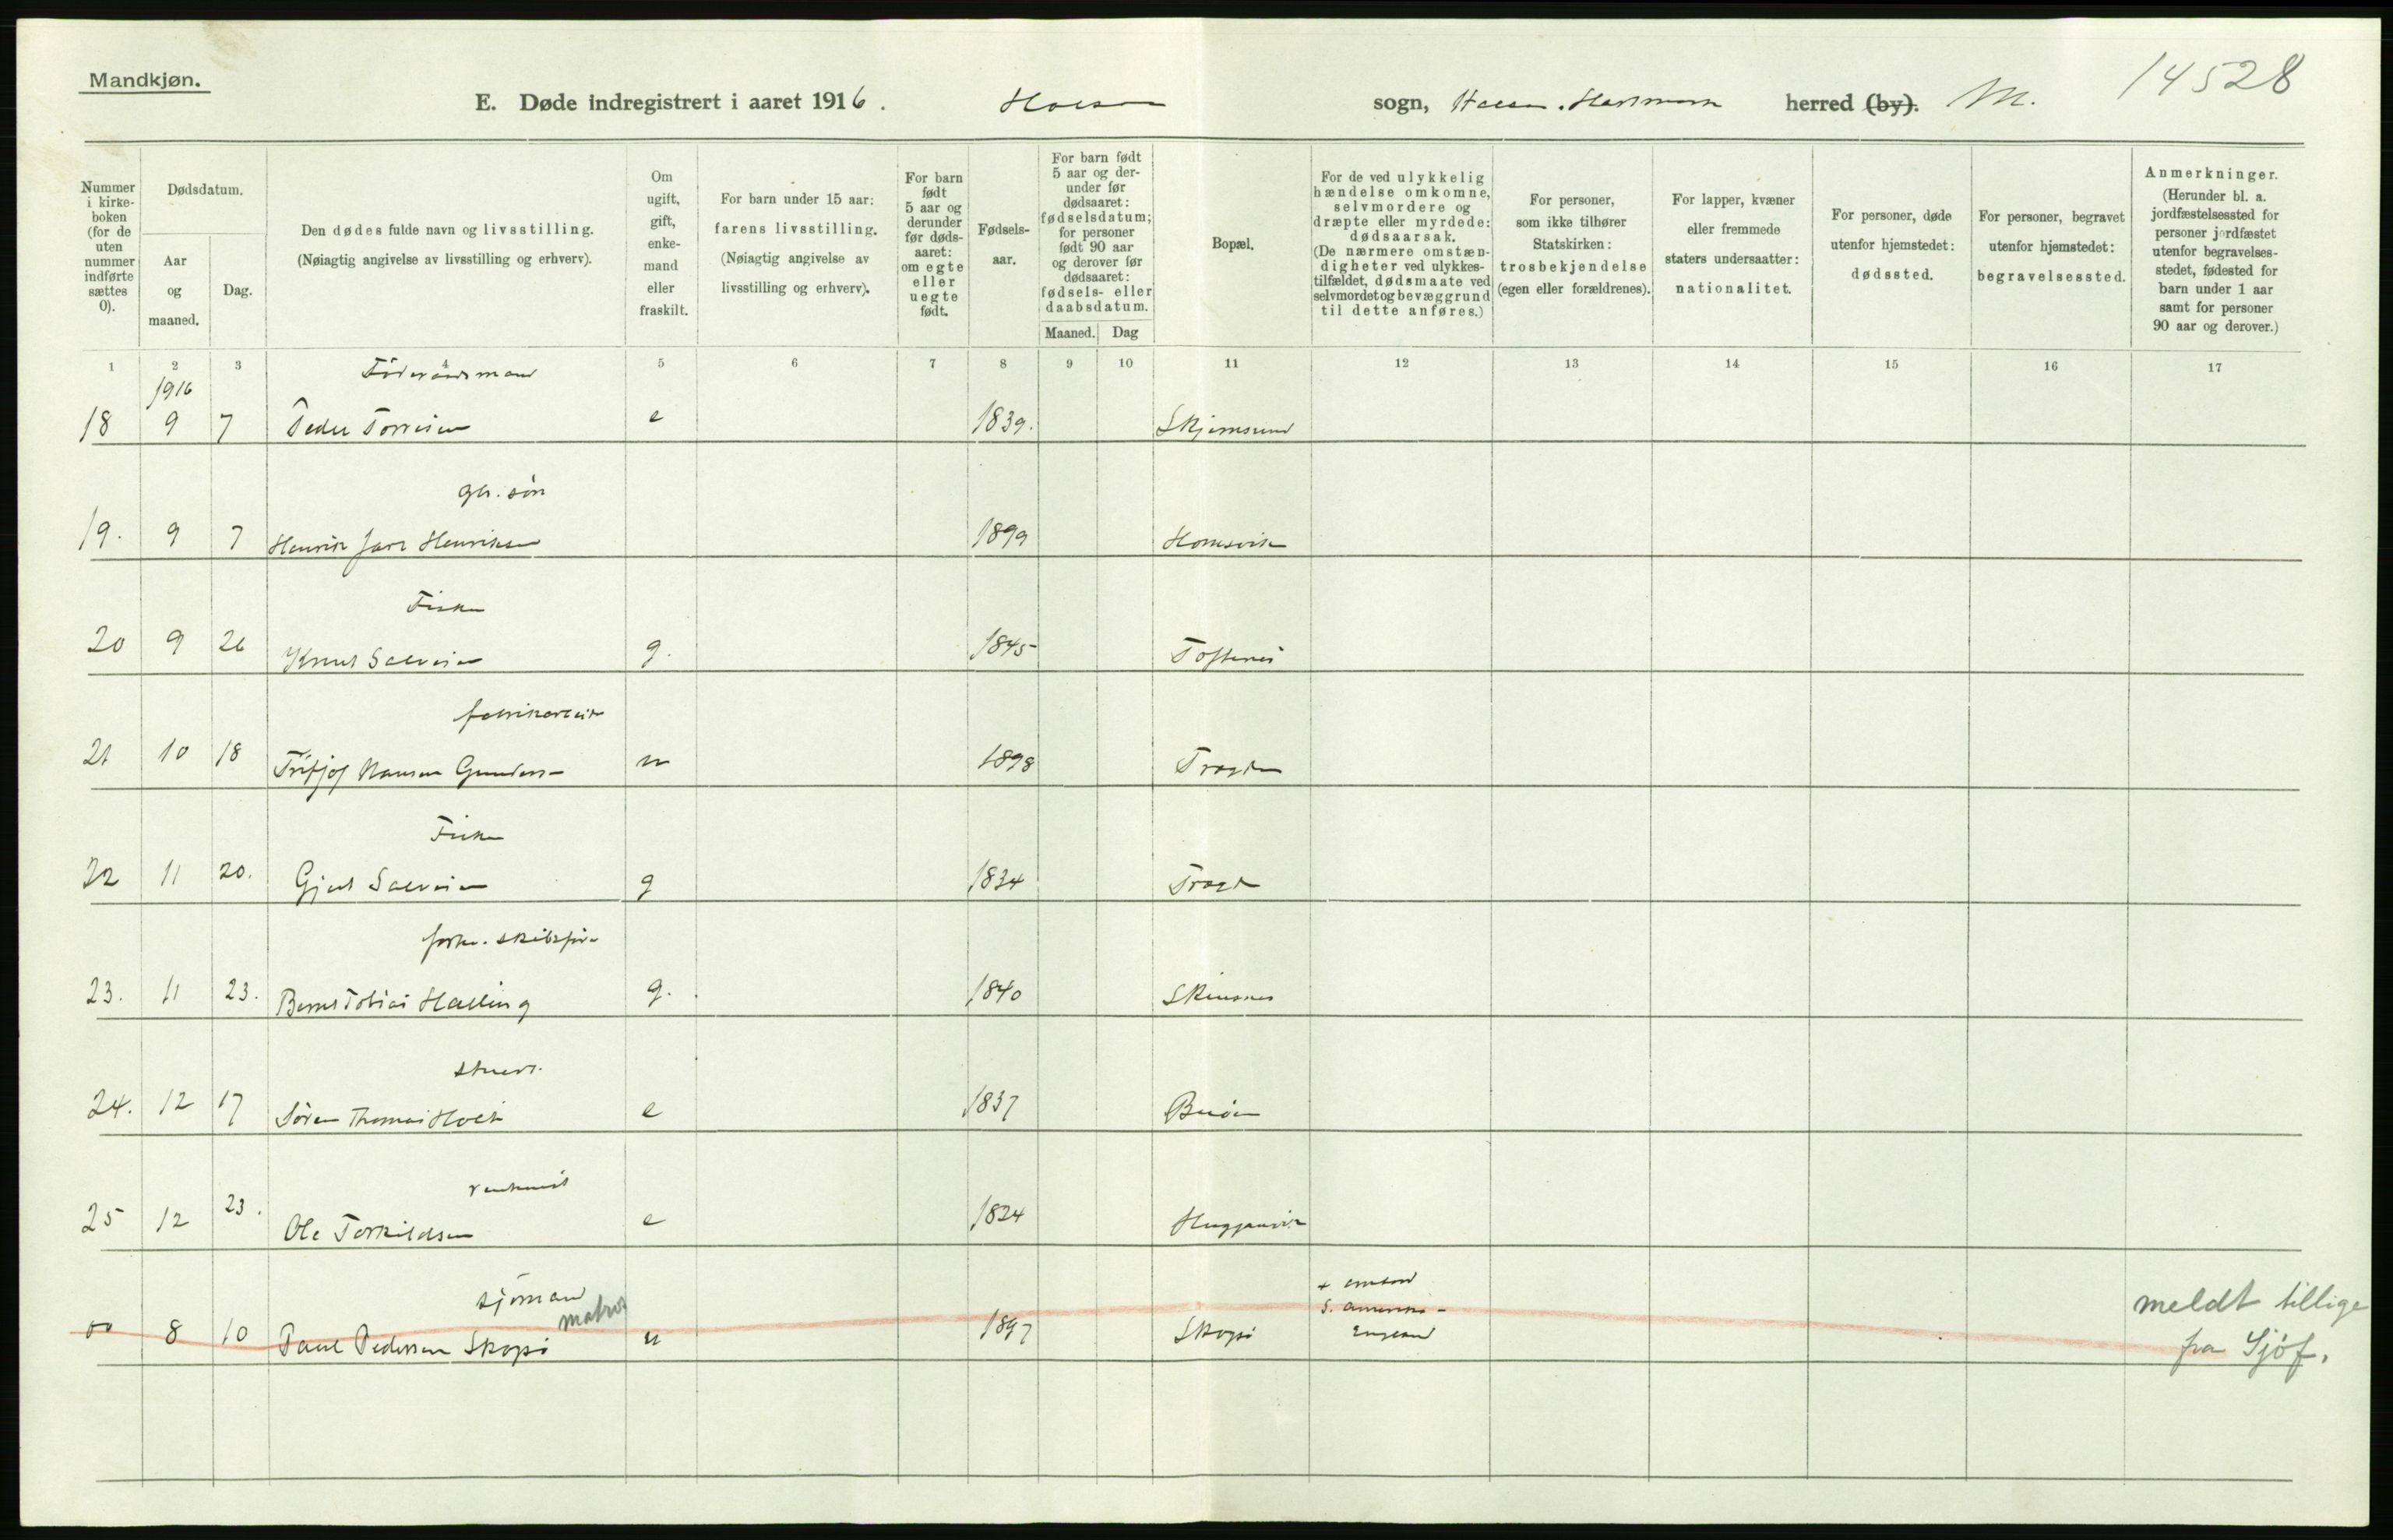 Mandkjøn.
14528
E. Døde indregistrert i aaret 1916. sogn, herred (by). M.
Nummer i kirkeboken (for de uten nummer indførte sættes 0).
Dødsdatum.
Aar og maaned.
Dag.
Den dødes fulde navn og livsstilling.
(Nøiagtig angivelse av livsstilling og erhverv).
Om ugift, gift, enkemand eller fraskilt.
For barn under 15 aar: farens livsstilling.
(Nøiagtig angivelse av livsstilling og erhverv).
For barn født 5 aar og derunder før dødsaaret: om egte eller uegte født.
Fødselsaar.
For barn født 5 aar og derunder før dødsaaret: fødselsdatum; for personer født 90 aar og derover før dødsaaret: fødsels- eller daabsdatum.
Maaned. Dag
Bopæl.
For de ved ulykkelig hændelse omkomne, selvmordere og dræpte eller myrdede: dødsaarsak.
(De nærmere omstændigheter ved ulykkestilfældet, dødsmaate ved selvmordet og bevæggrund til dette anføres.)
For personer, som ikke tilhører Statskirken: trosbekjendelse (egen eller forældrenes).
For lapper, kvæner eller fremmede staters undersaatter: nationalitet.
For personer, døde utenfor hjemstedet: dødssted.
For personer, begravet utenfor hjemstedet: begravelsessted.
Anmerkninger.
(Herunder bl. a. jordfæstelsessted for personer jordfæstet utenfor begravelsesstedet, fødested for barn under 1 aar samt for personer 90 aar og derover.)
1 2 3 4 5 6 7 8 9 10 11 12 13 14 15 16 17
1916
Føderaadsmand
18 9 7 Peder Torrisen e 1839. Skjernsund
gb. søn
19. 9 7 Henrik Jarl Henriksen 1899
Fisker
20 9 26 Knut Salvesen g. 1845 Toftenes
fabrikarbeider
21 10 18 Fritjof Nansen Gundersen u 1898
Fisker
22 11 20. Salvesen g 1834
forhv. skibsfører
23. 11 23. Tobias Halling g. 1840
24. 12 17 Søren Thomas Holt e 1837
25 12 23. Ole Torkildsen e 1824
sjømand
matros
8 10 Paul Pedersen Skogsø u 1897 Skogsø
+ ombord
S. Amerika -
England
meldt tillige
fra Sjøf.